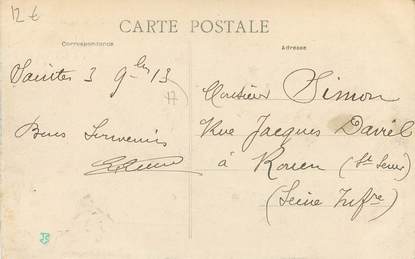 12 €
CARTE POSTALE
Correspondance
Adresse
Saintes 3 9bre 13
17
Monsieur Simon
Bons Souvenirs
Rue Jacques Daviel
à Rouen (St Sever)
(Seine Infre)
JS